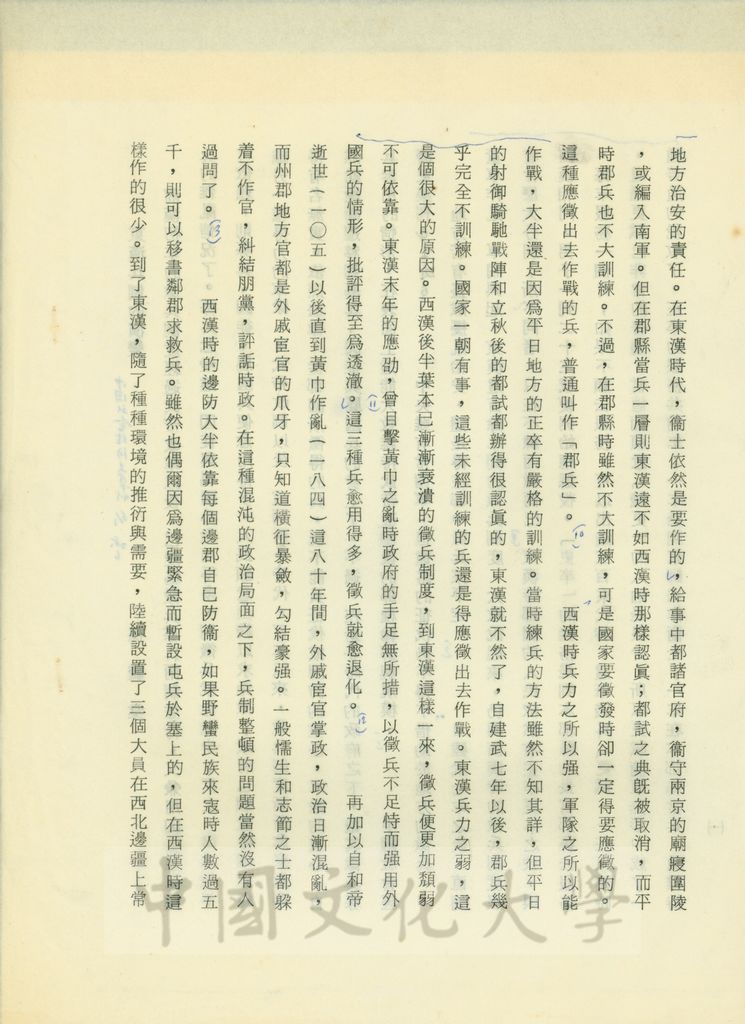 地方治安的責任。在東漢時代，衞士依然是要作的，給事中都諸官府，衞守兩京的廟寢園陵
，或編入南軍。但在郡縣當兵一層則東漢遠不如西漢時那樣認眞；都試之典旣被取消，而平
時郡兵也不大訓練。不過，在郡縣時雖然不大訓練，可是國家要徵發時卻一定得要應徵的。
這種應徵出去作戰的兵，普通叫作「郡兵」。(10) 西漢時兵力之所以强，軍隊之所以能
作戰，大半還是因爲平日地方的正卒有嚴格的訓練。當時練兵的方法雖然不知其詳，但平日
的射御騎馳戰陣和立秋後的都試都辦得很認眞的，東漢就不然了，自建武七年以後，郡兵幾
乎完全不訓練。國家一朝有事，這些未經訓練的兵還是得應徵出去作戰。東漢兵力之弱，這
是個很大的原因。西漢後半葉本已漸漸衰潰的徵兵制度，到東漢這樣一來，徵兵便更加頹弱
不可依靠。東漢末年的應劭，曾目擊黃巾之亂時政府的手足無所措，以徵兵不足恃而强用外
國兵的情形，批評得至爲透澈。(11)這三種兵愈用得多，徵兵就愈退化。(12) 再加以自和帝
逝世（一〇五）以後直到黃巾作亂（一八四）這八十年間，外戚宦官掌政，政治日漸混亂，
而州郡地方官都是外戚宦官的爪牙，只知道橫征暴斂，勾結豪强。一般懦生和志節之士都躱
着不作官，糾結朋黨，評詬時政。在這種混沌的政治局面之下，兵制整頓的問題當然沒有人
過問了。(13) 西漢時的邊防大半依靠每個邊郡自己防衞，如果野蠻民族來寇時人數過五
千，則可以移書鄰郡求救兵。雖然也偶爾因爲邊疆緊急而暫設屯兵於塞上的，但在西漢時這
樣作的很少。到了東漢，隨了種種環境的推衍與需要，陸續設置了三個大員在西北邊疆上常
中國文化大學